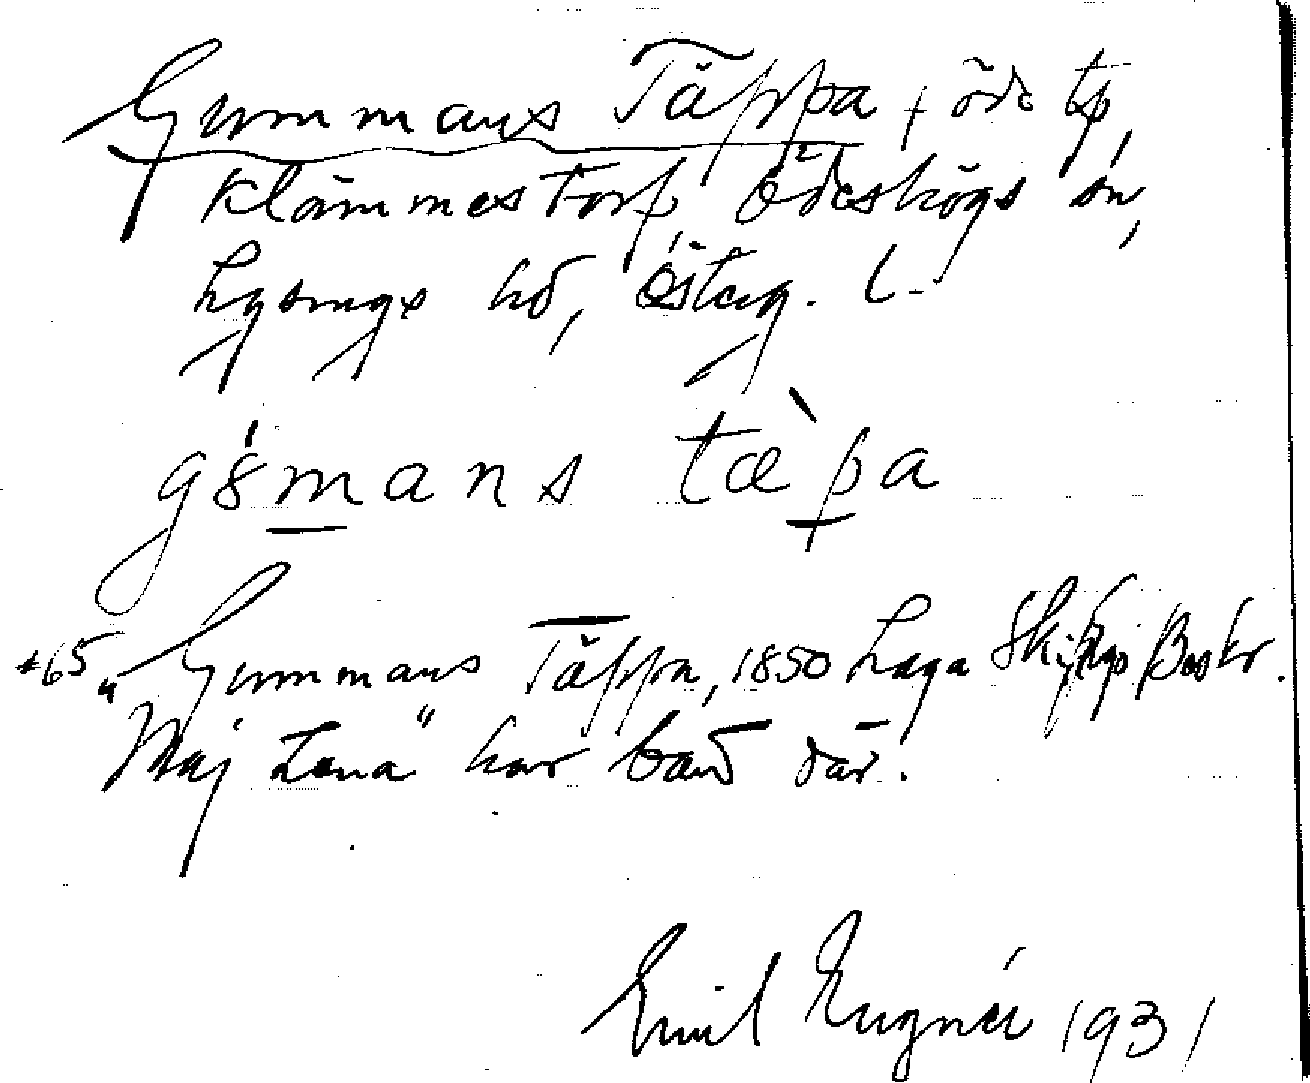 Gummans Täppa, öde tp,
Klämmestorp, Ödeshögs sn,
Lysings hd, Österg. L.
gɞ́mans tæ̀pa
*65 Gummans Täppa, 1850 Laga Skiftes Beskr.
"Maj Lena" har bott där.
Emil Eugnér 1931